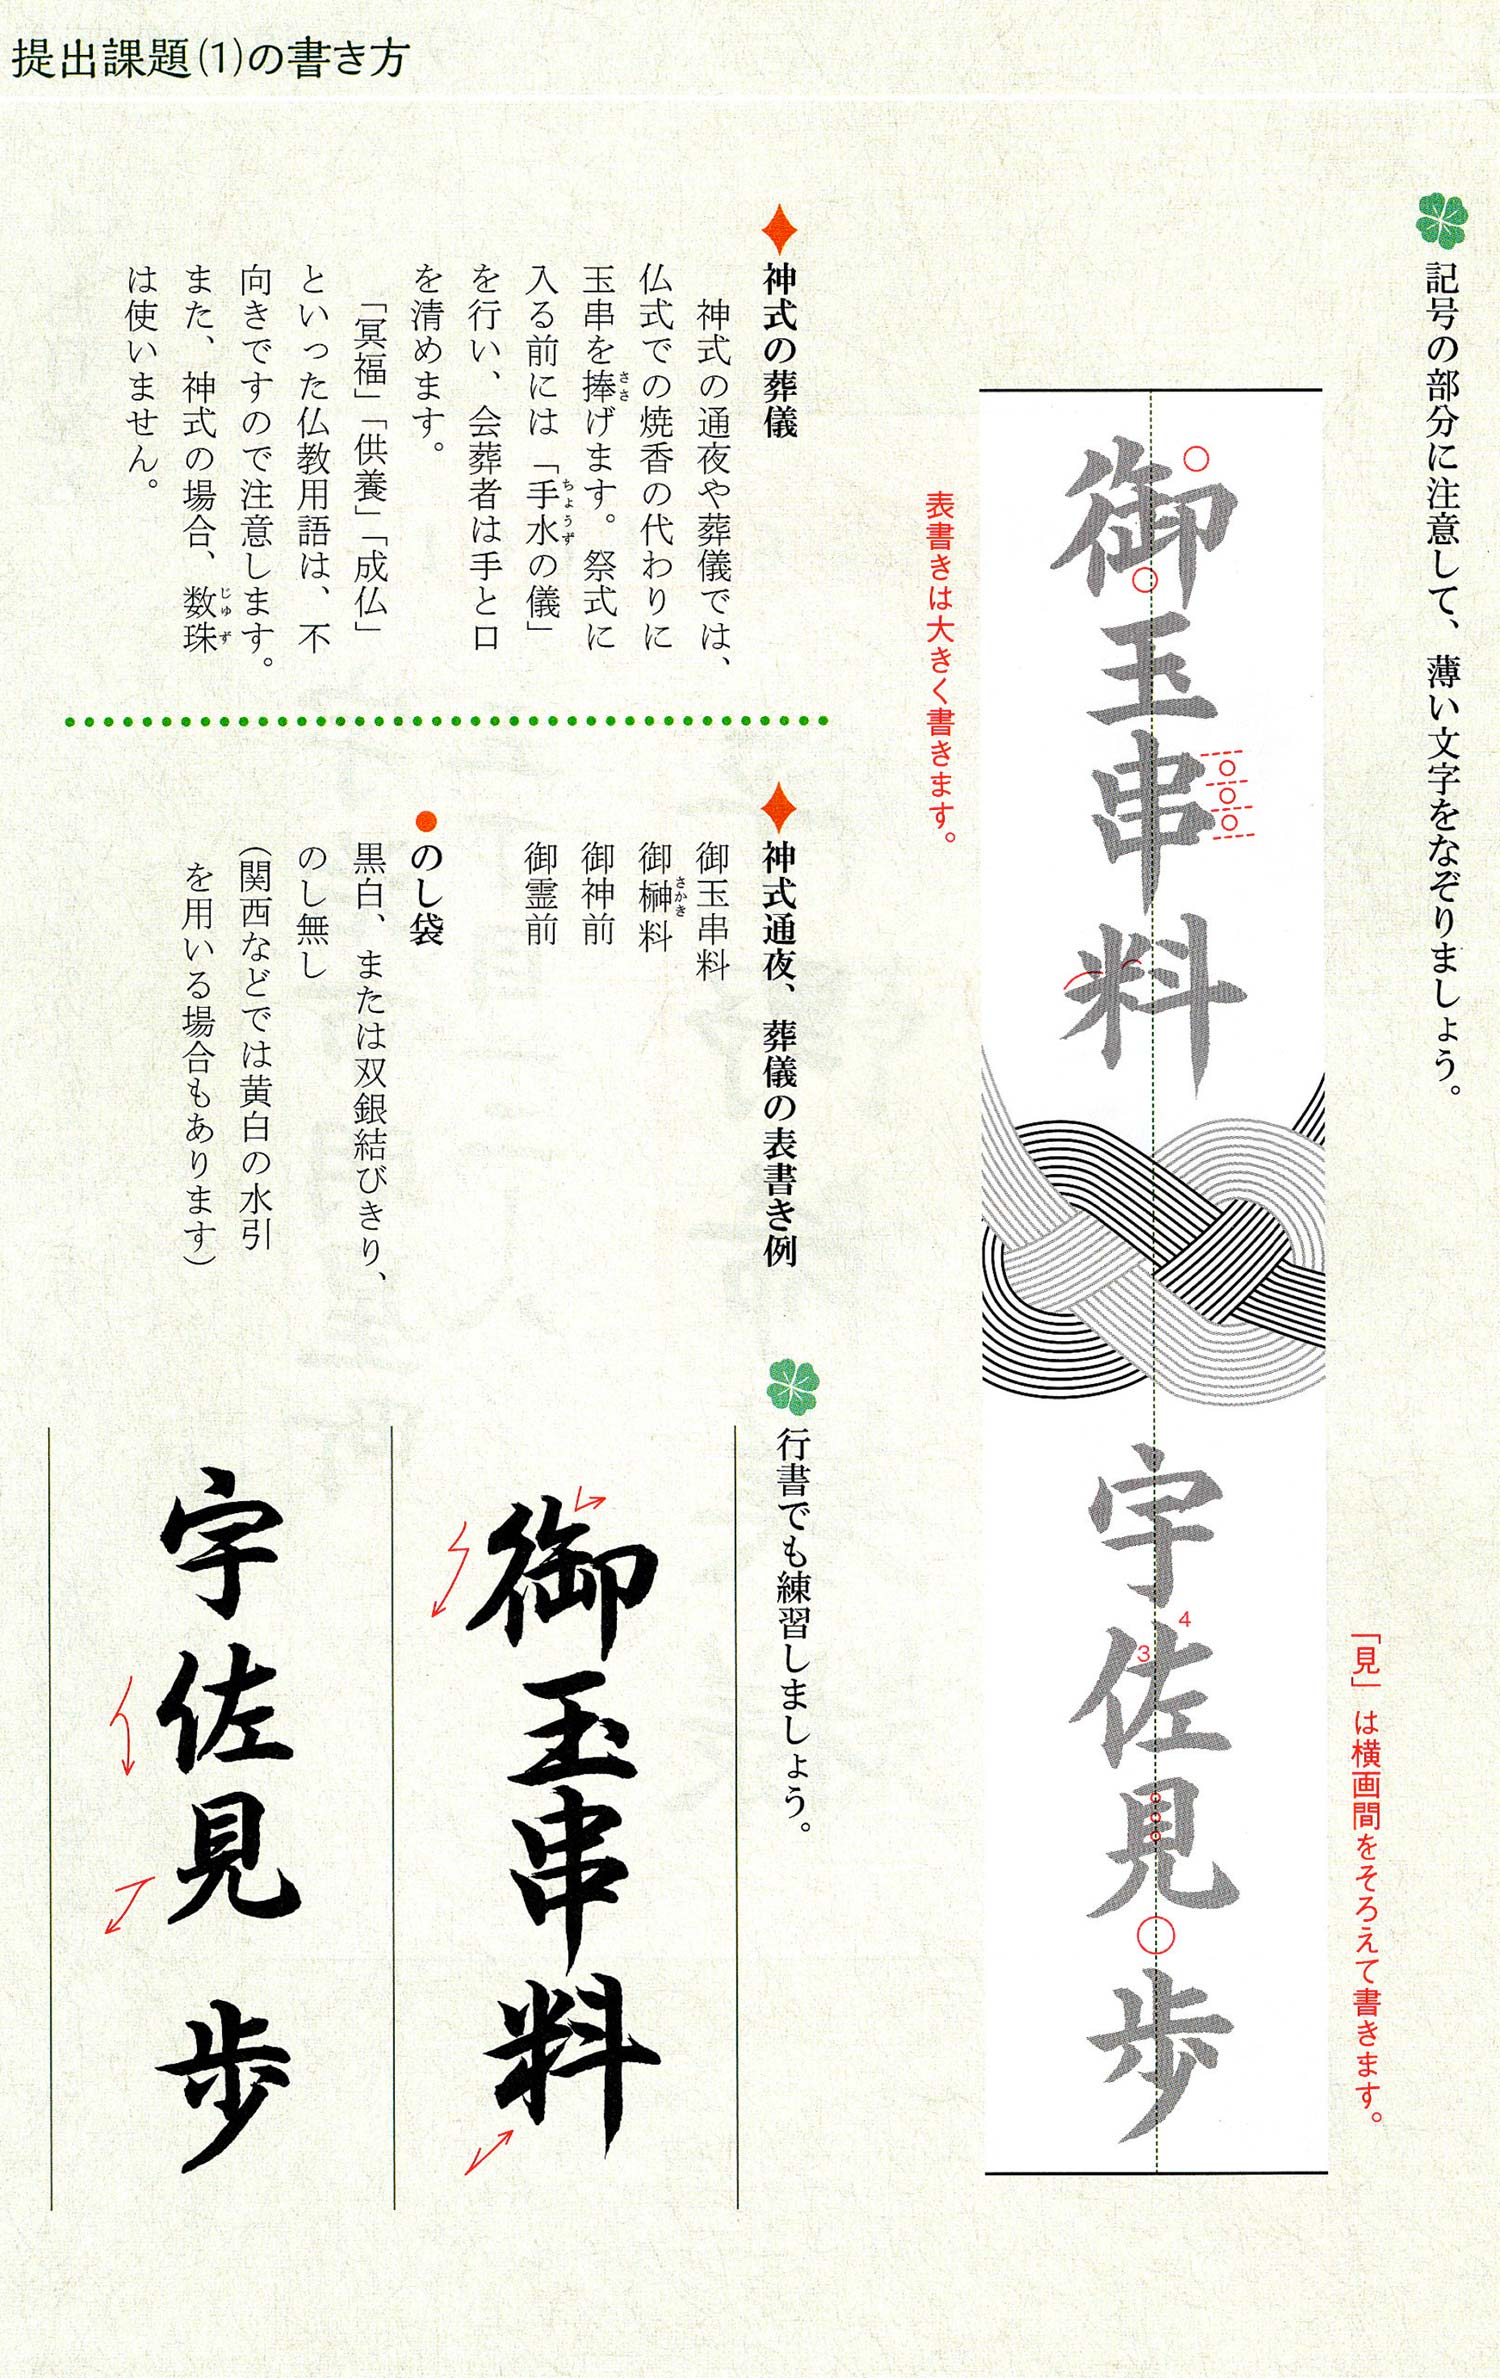 提出課題(1)の書き方
記号の部分に注意して、薄い文字をなぞりましょう。
「見」は横画間をそろえて書きます。
御玉串料
宇佐見歩
4
3
表書きは大きく書きます。
神式の葬儀
神式の通夜や葬儀では、
仏式での焼香の代わりに
玉串を捧げます。祭式に
ささ
入る前には「手水の儀」
ちょうず
を行い、会葬者は手と口
を清めます。
「冥福」「供養」「成仏」
といった仏教用語は、不
向きですので注意します。
また、神式の場合、数珠
じゅず
は使いません。
神式通夜、葬儀の表書き例
御玉串料
御榊料
さかき
御神前
御霊前
のし袋
黒白、または双銀結びきり、
のし無し
(関西などでは黄白の水引
を用いる場合もあります)
行書でも練習しましょう。
御玉串料
宇佐見歩